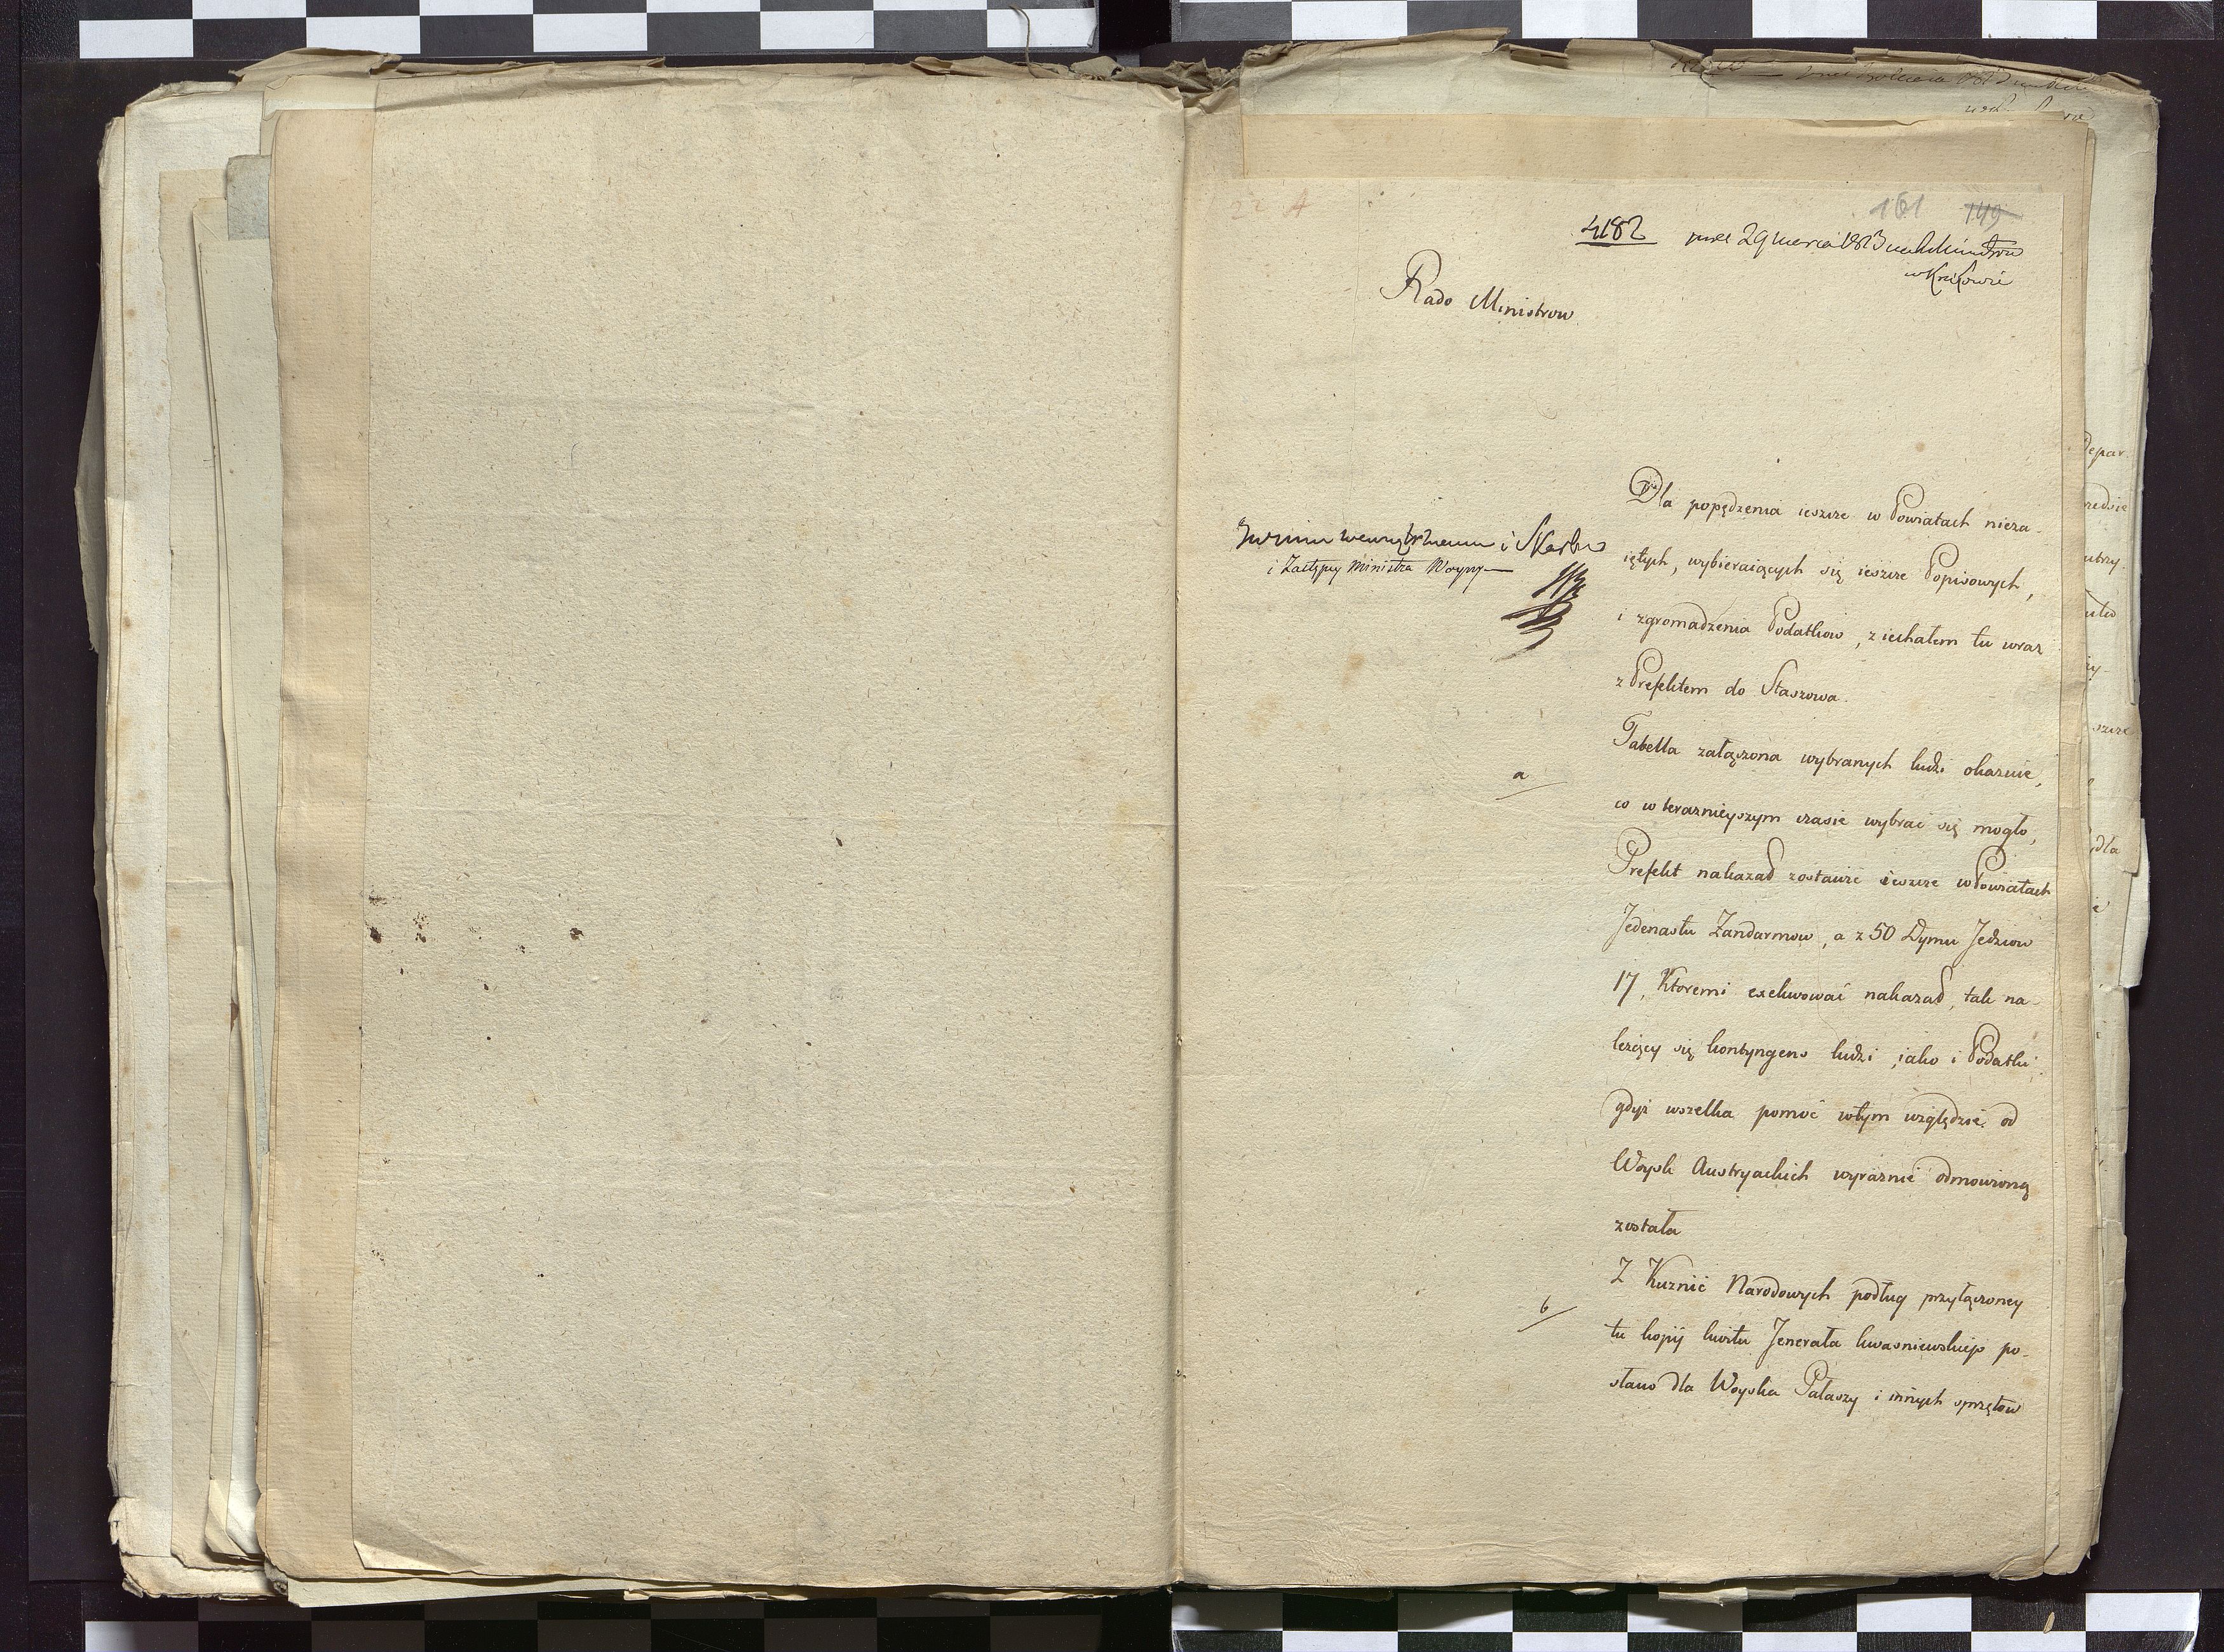 22 A
161 149
4182 29 Marca 1813
w Krakowie
Rado Ministrow
wewnętrznemu i Skarbu
i Zastępcy Ministra Woyny
Dla popędzenia ieszcze w Powiatach nieza-
iętych, wybieraiących się ieszcze Popisowych,
i zgromadzenia Podatkow, ziechałem tu wraz
z Prefektem do Staszowa.
a
Tabella załączona wybranych ludzi okazuie,
co w teraznieyszym czasie wybrać się mogło,
Prefekt nakazał zostawić ieszcze w Powiatach
Jedenastu Zandarmow, a z 50 Dymu Jedzcow
17, Ktoremi exekwować nakazał, tak na-
leżący się kontyngens ludzi, iako i Podatki
gdyż wszelka pomoc w tym względzie od
Woysk Austryackich wyraznie odmowioną
została
b
Z Kuznic Narodowych podług przyłączoney
tu kopij kwitu Jenerała kwasniewskiego po-
słano dla Woyska Pałaszy i innych sprzętow
Depar.
szcze
dla